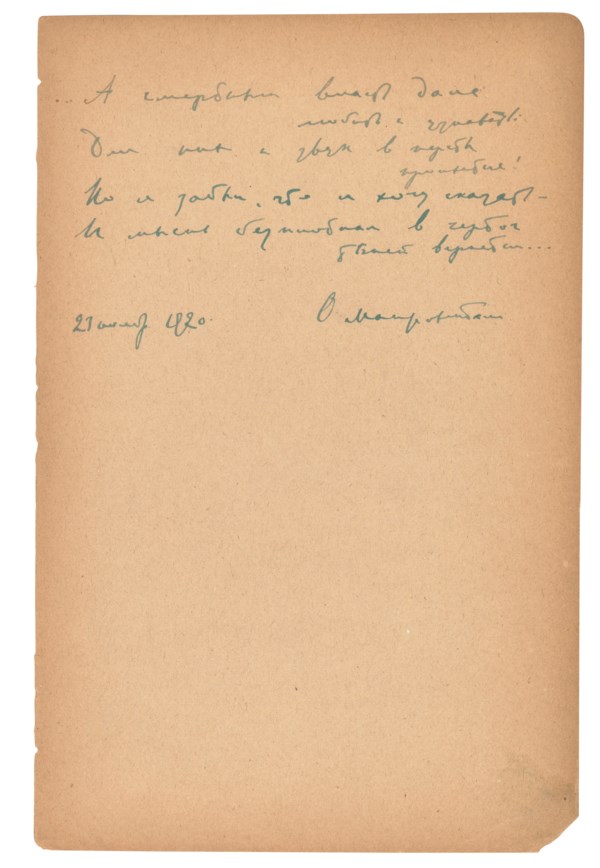 ... А смертным власть дана
любить и узнавать.
Для них и звук в персты
прольется!
Но я забыл, что я хочу сказать –
И мысль бесплотная в чертог
теней вернется...
23 ноябр 1920.
О Мандельштам